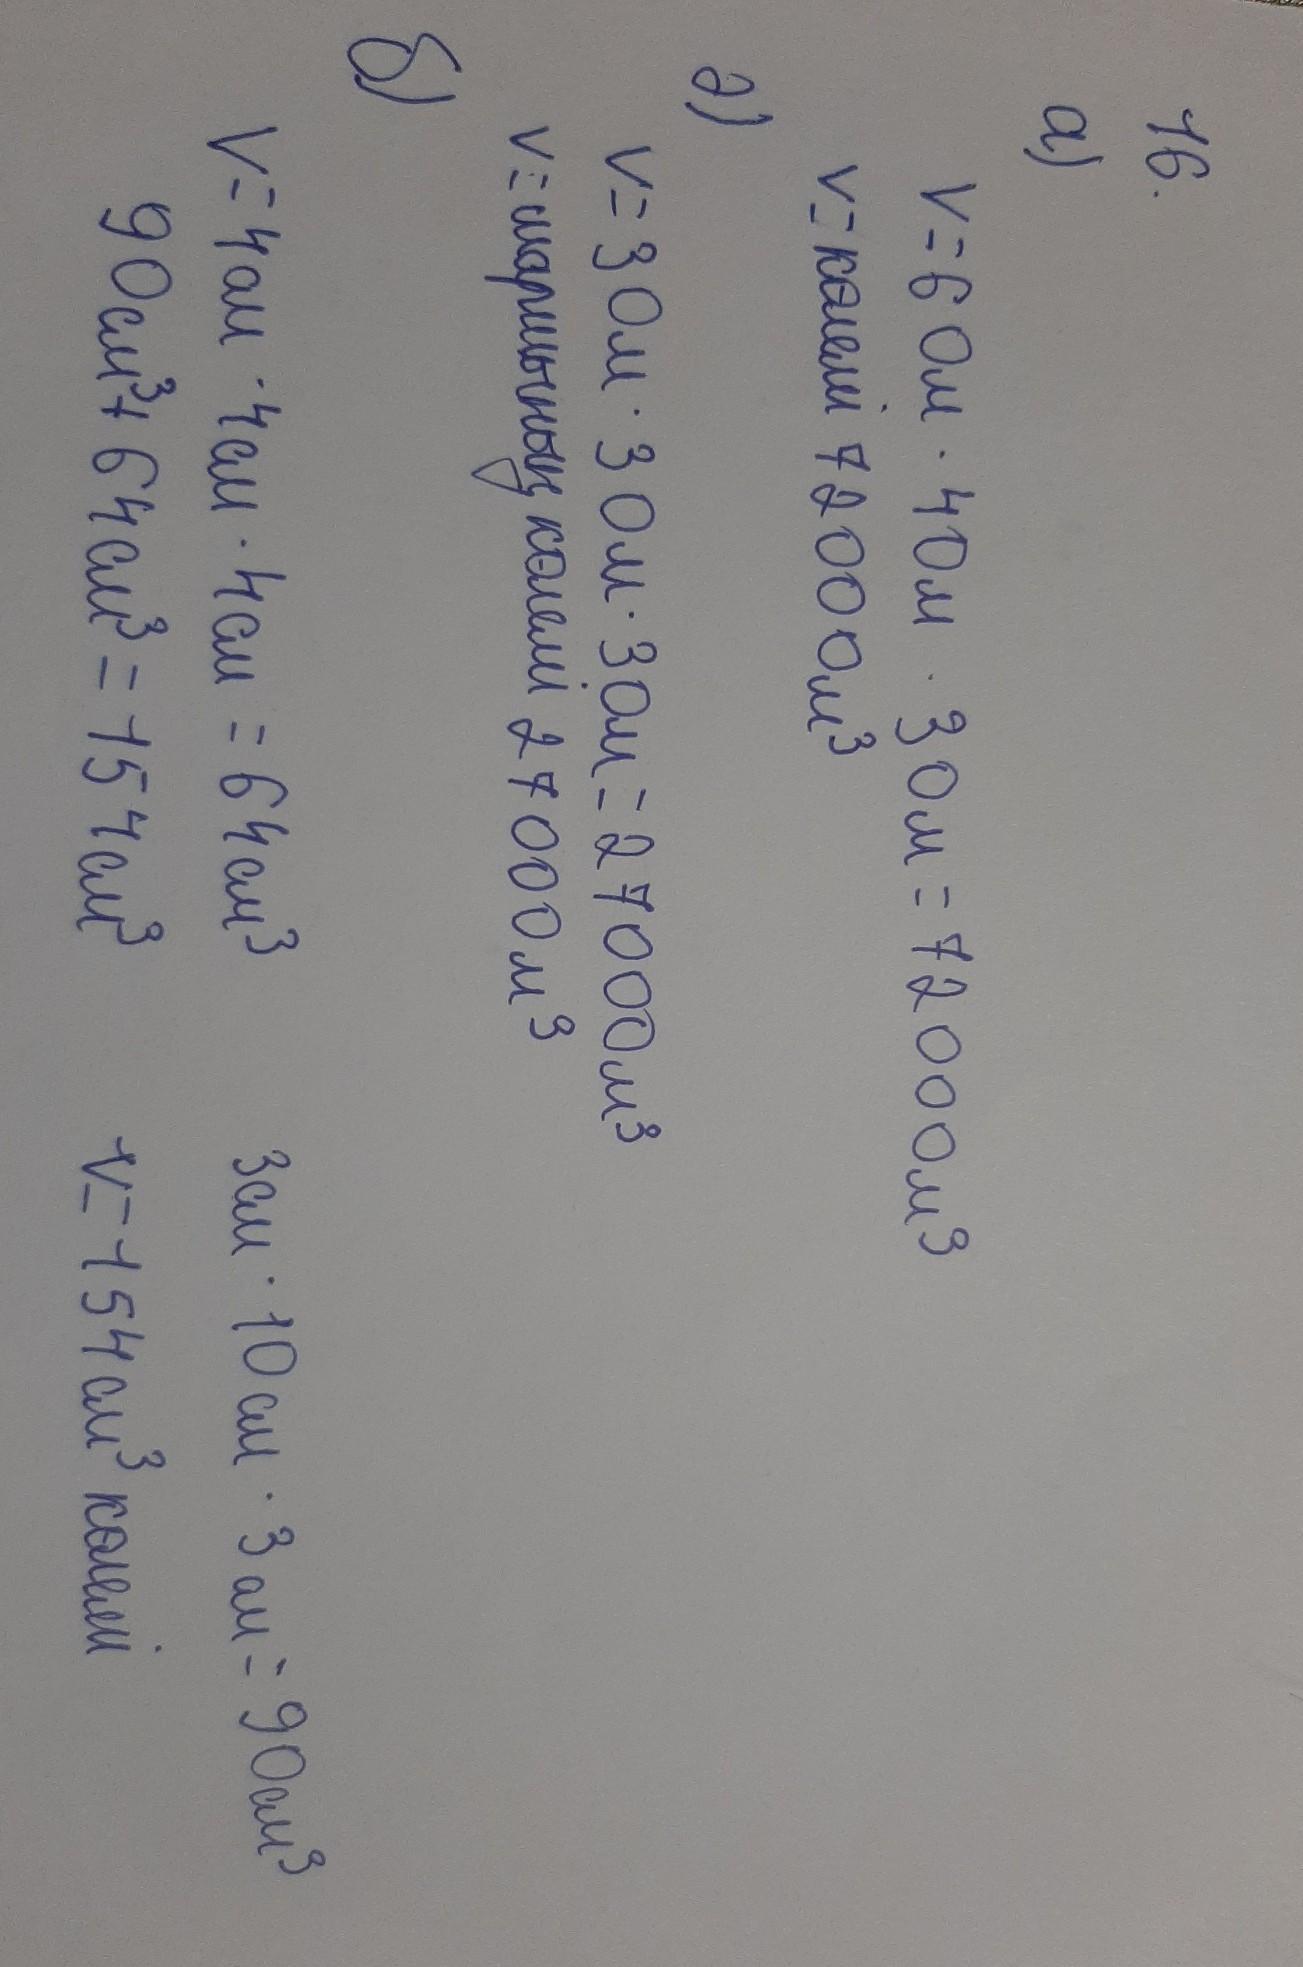 16.
а)
V=60м·40м·30м=72000м³
V=көлемі 72000м³
ә)
V=30м·30м·30м=27000м³
V=шаршының көлемі 27000м³
б)
V=4см·4см·4см=64см³ 3см·10см·3см=90см³
90см³+64см³=154см³ V=154см³ көлемі